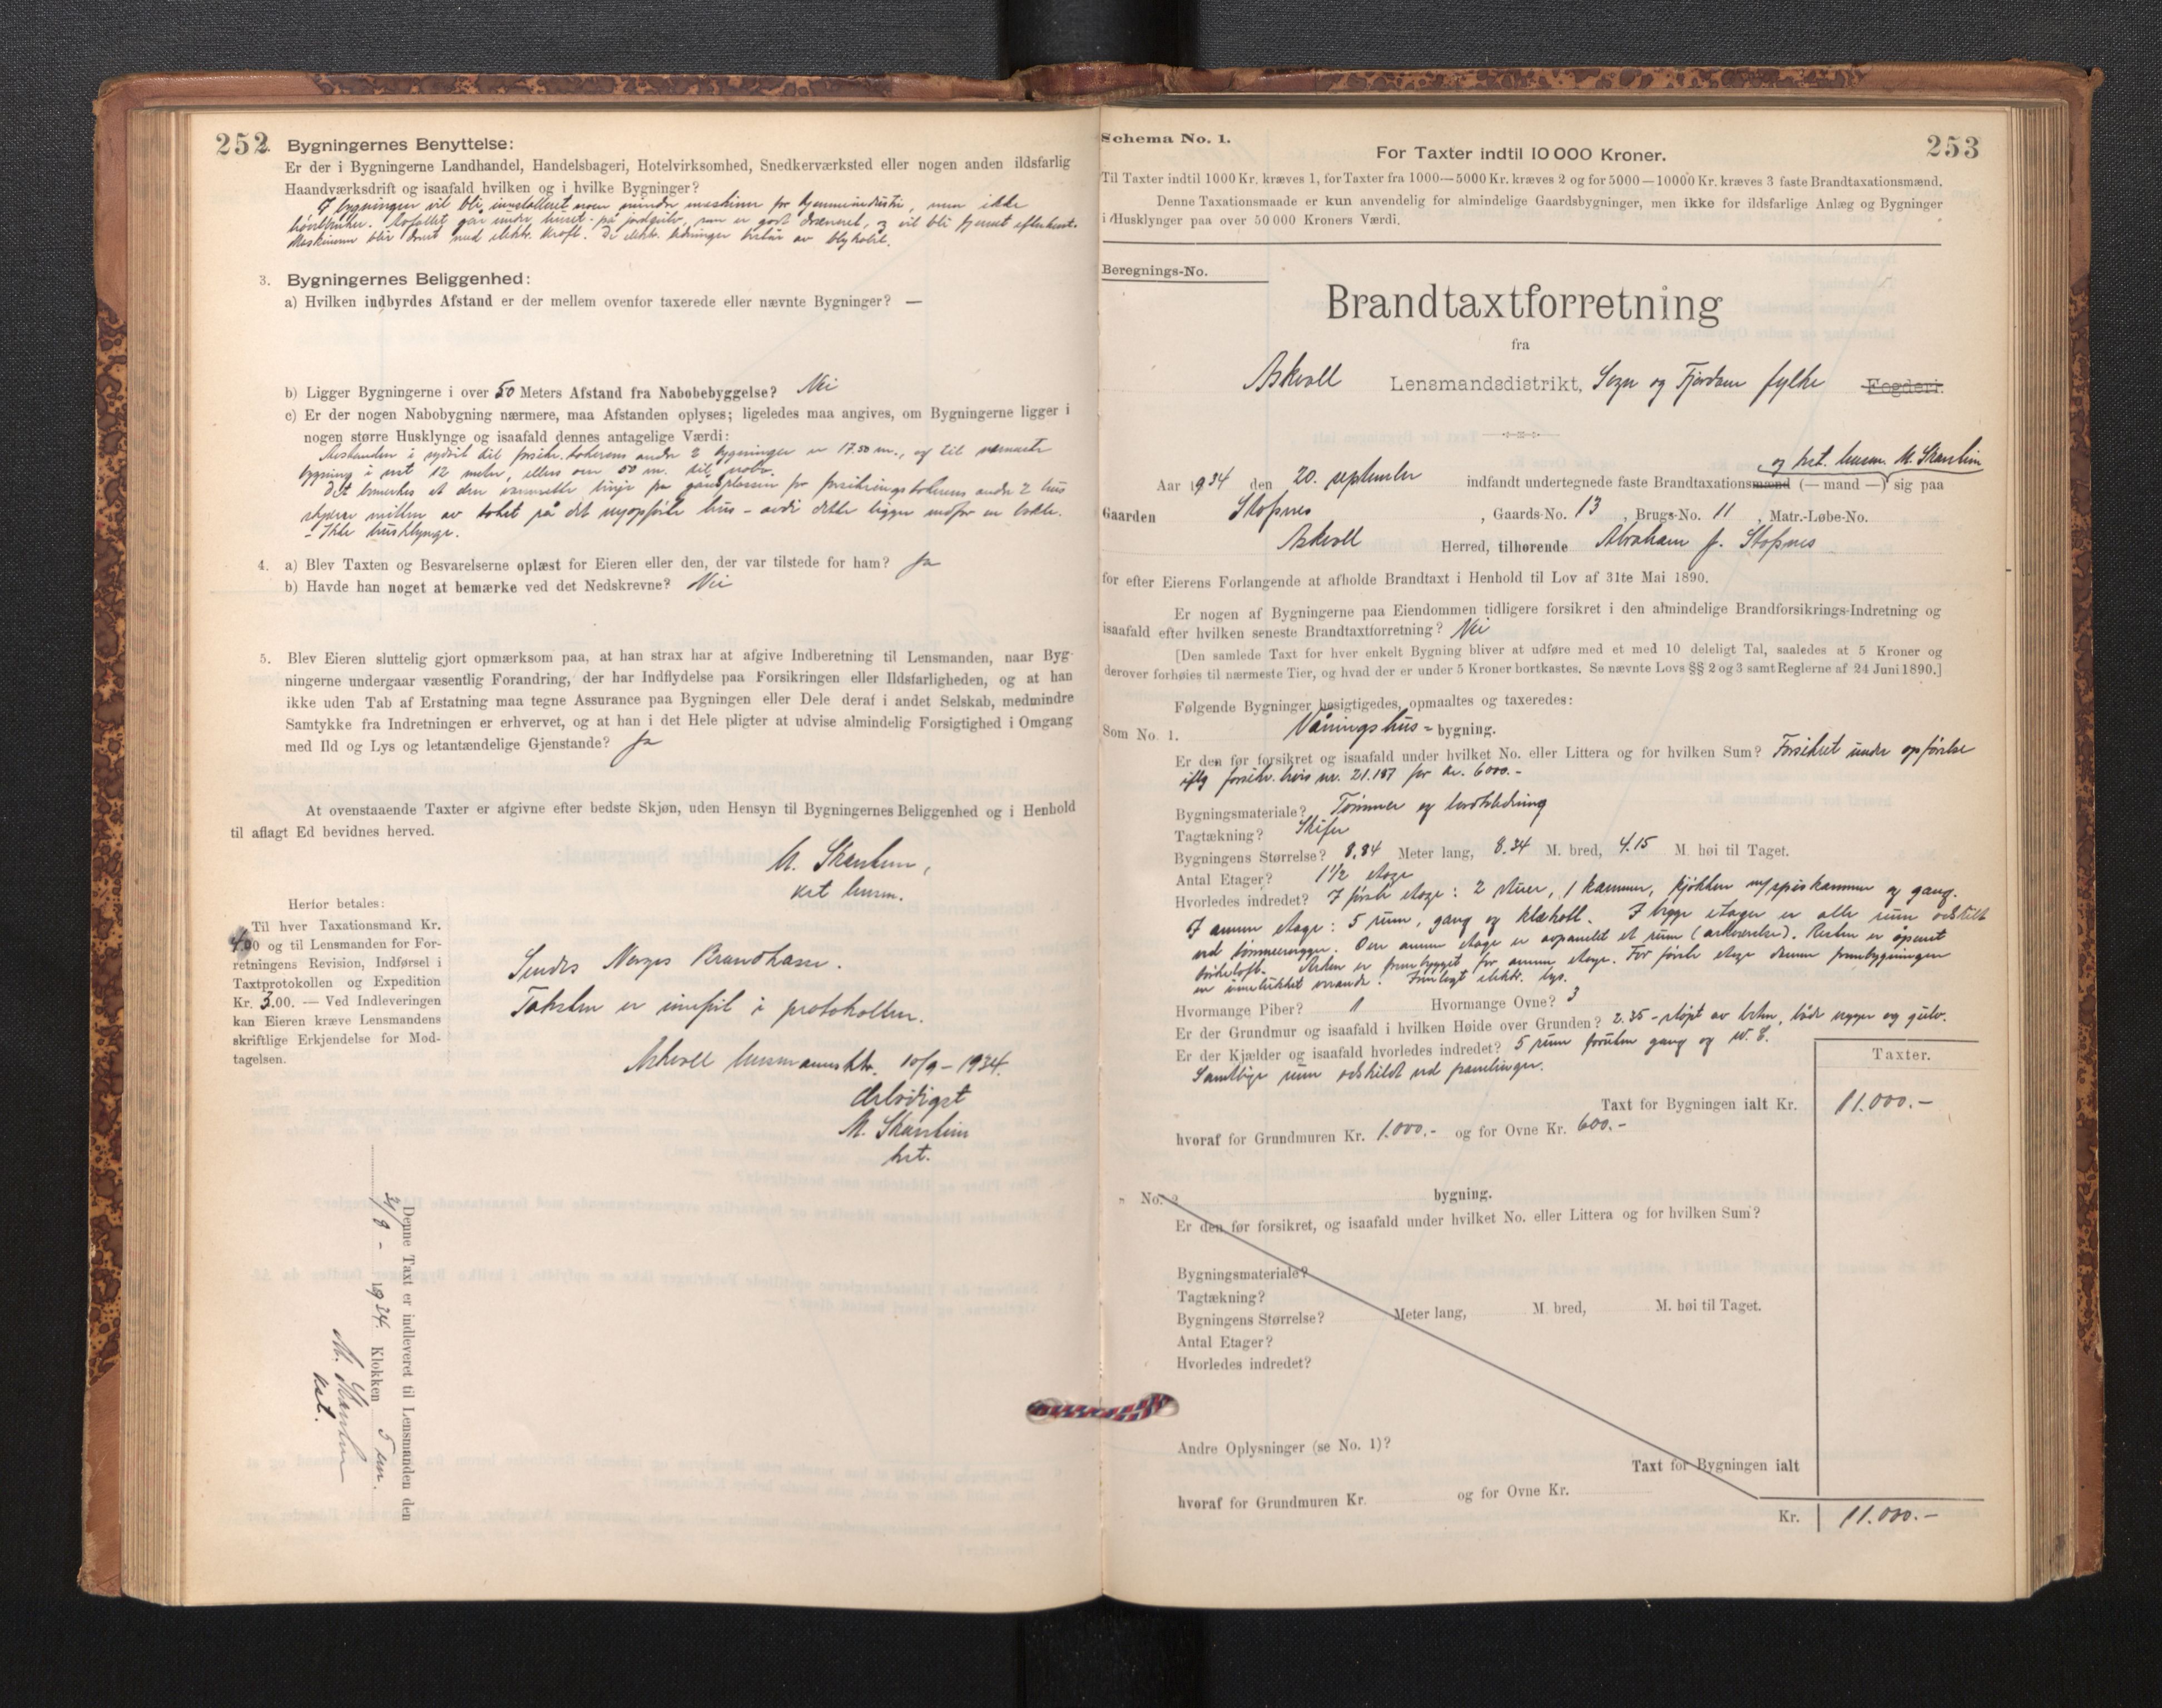 252
Bygningernes Benyttelse:
Er der i Bygningerne Landhandel, Handelsbageri, Hotelvirksomhed, Snedkerværksted eller nogen anden ildsfarlig
Haandværksdrift og isaafald hvilken og i hvilke Bygninger?
I bygningen vil bli innstalleret noen mindre maskiner for hjemmeindustri, men ikke
Avfallet går under huset - på jordgulv, men er godt drænert, og vil bli fjernet efterhvert.
Maskinene blir drevet med elektr. kraft. De elektr. ledninger består av blykabel.
3. Bygningernes Beliggenhed:
a) Hvilken indbyrdes Afstand er der mellem ovenfor taxerede eller nævnte Bygninger? —
b) Ligger Bygningerne i over 50 Meters Afstand fra Nabobebyggelse? Nei
c) Er der nogen Nabobygning nærmere, maa Afstanden oplyses; ligeledes maa angives, om Bygningerne ligger i
nogen større Husklynge og isaafald dennes antagelige Værdi:
Avstanden i sydvest til forsikr.takerens andre 2 bygninger er 17.50 m., og til nærmeste
bygning i øst 12 meter, ellers over 50 m. til nabo.
Det bemerkes at den vannrette linje fra gårdsplassen for forsikringstakerens andre 2 hus
skjærer midten av taket på det nyopførte hus - avdi dette ligger nedfor en bakke.
- Ikke husklynge.
4. a) Blev Taxten og Besvarelserne oplæst for Eieren eller den, der var tilstede for ham? Ja
b) Havde han noget at bemærke ved det Nedskrevne? Nei
5. Blev Eieren sluttelig gjort opmærksom paa, at han strax har at afgive Indberetning til Lensmanden, naar Byg-
ningerne undergaar væsentlig Forandring, der har Indflydelse paa Forsikringen eller Ildsfarligheden, og at han
ikke uden Tab af Erstatning maa tegne Assurance paa Bygningen eller Dele deraf i andet Selskab, medmindre
Samtykke fra Indretningen er erhvervet, og at han i det Hele pligter at udvise almindelig Forsigtighed i Omgang
med Ild og Lys og letantændelige Gjenstande? Ja
At ovenstaaende Taxter er afgivne efter bedste Skjøn, uden Hensyn til Bygningernes Beliggenhed og i Henhold
til aflagt Ed bevidnes herved.
M. Skarstein,
kst lensm.
Herfor betales:
Til hver Taxationsmand Kr.
4.00 og til Lensmanden for For-
retningens Revision, Indførsel i
Taxtprotokollen og Expedition
Kr. 3.00. — Ved Indleveringen
kan Eieren kræve Lensmandens
skriftlige Erkjendelse for Mod-
tagelsen.
Sendes Norges Brandkasse.
Taksten er innført i protokollen.
Askvoll lensmannsktr. 10/9 - 1934.
Ærbødigst
M. Skarstein
kst.
Denne Taxt er indleveret til Lensmanden den
21/9 - 1934. Klokken 5 em.
M. Skarstein
kst.
Schema No. 1.
253
For Taxter indtil 10 000 Kroner.
Til Taxter indtil 1000 Kr. kræves 1, for Taxter fra 1000—5000 Kr. kræves 2 og for 5000—10000 Kr. kræves 3 faste Brandtaxationsmænd.
Denne Taxationsmaade er kun anvendelig for almindelige Gaardsbygninger, men ikke for ildsfarlige Anlæg og Bygninger
i Husklynger paa over 50 000 Kroners Værdi.
Beregnings-No.
Brandtaxtforretning
fra
Askvoll Lensmandsdistrikt, Sogn og Fjordane fylke Fogderi.
og kst. lensm. M. Skarstein
Aar 1934 den 20. september indfandt undertegnede faste Brandtaxationsmænd (— mand —) sig paa
Gaarden Stofsnes, Gaards-No. 13, Brugs-No. 11, Matr.-Løbe-No.
Askvoll Herred, tilhørende Abraham J. Stofsnes
for efter Eierens Forlangende at afholde Brandtaxt i Henhold til Lov af 31te Mai 1890.
Er nogen af Bygningerne paa Eiendommen tidligere forsikret i den almindelige Brandforsikrings-Indretning og
isaafald efter hvilken seneste Brandtaxtforretning? Nei
[Den samlede Taxt for hver enkelt Bygning bliver at udføre med et med 10 deleligt Tal, saaledes at 5 Kroner og
derover forhøies til nærmeste Tier, og hvad der er under 5 Kroner bortkastes. Se nævnte Lovs §§ 2 og 3 samt Reglerne af 24 Juni 1890.]
Følgende Bygninger besigtigedes, opmaaltes og taxeredes:
Som No. 1. Våningshus - bygning.
Er den før forsikret og isaafald under hvilket No. eller Littera og for hvilken Sum? Forsikret under opførelse
iflg forsikr. bevis nr. 21.187 for kr. 6000.-
Bygningsmateriale? Tømmer og bordkledning
Tagtækning? Skifer
Bygningens Størrelse? 8.84 Meter lang, 8.34 M. bred, 4.15 M. høi til Taget.
Antal Etager? 1 1/2 etage
Hvorledes indredet? I første etage: 2 stuer, 1 kammer, kjøkken m/spiskammer og gang.
I annen etage: 5 rum, gang og klækott. I begge etager er alle rum adskilt
ved tømmervegger. Over annen etage er avpanelet et rum (arkværelse). Resten er åpent
mørkeloft. Arken er frembygget for annen etage. For første etage danner frembygningen
en innelukket veranda. Innlagt elektr. lys.
Hvormange Piber? 1 Hvormange Ovne? 3
Er der Grundmur og isaafald i hvilken Høide over Grunden? 2.35 - støpt av betong, både vegger og gulv.
Er der Kjælder og isaafald hvorledes indredet? 5 rum foruten gang og W.C.
Samtlige rum adskildt ved panelinger.
Taxter.
Taxt for Bygningen ialt Kr. 11.000.-
hvoraf for Grundmuren Kr. 1.000.- og for Ovne Kr. 600.-
" No. 2 bygning.
Er den før forsikret, og isaafald under hvilket No. eller Littera og for hvilken Sum?
Bygningsmateriale?
Tagtækning?
Bygningens Størrelse? Meter lang, M. bred, M. høi til Taget.
Antal Etager?
Hvorledes indredet?
Andre Oplysninger (se No. 1)?
Taxt for Bygningen ialt
hvoraf for Grundmuren Kr. og for Ovne Kr.
Kr. 11.000.-